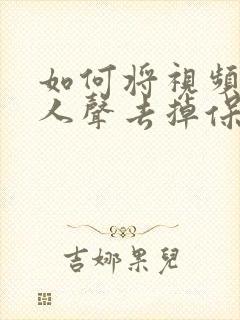 如何将視頻
人聲去掉保
吉娜果兒